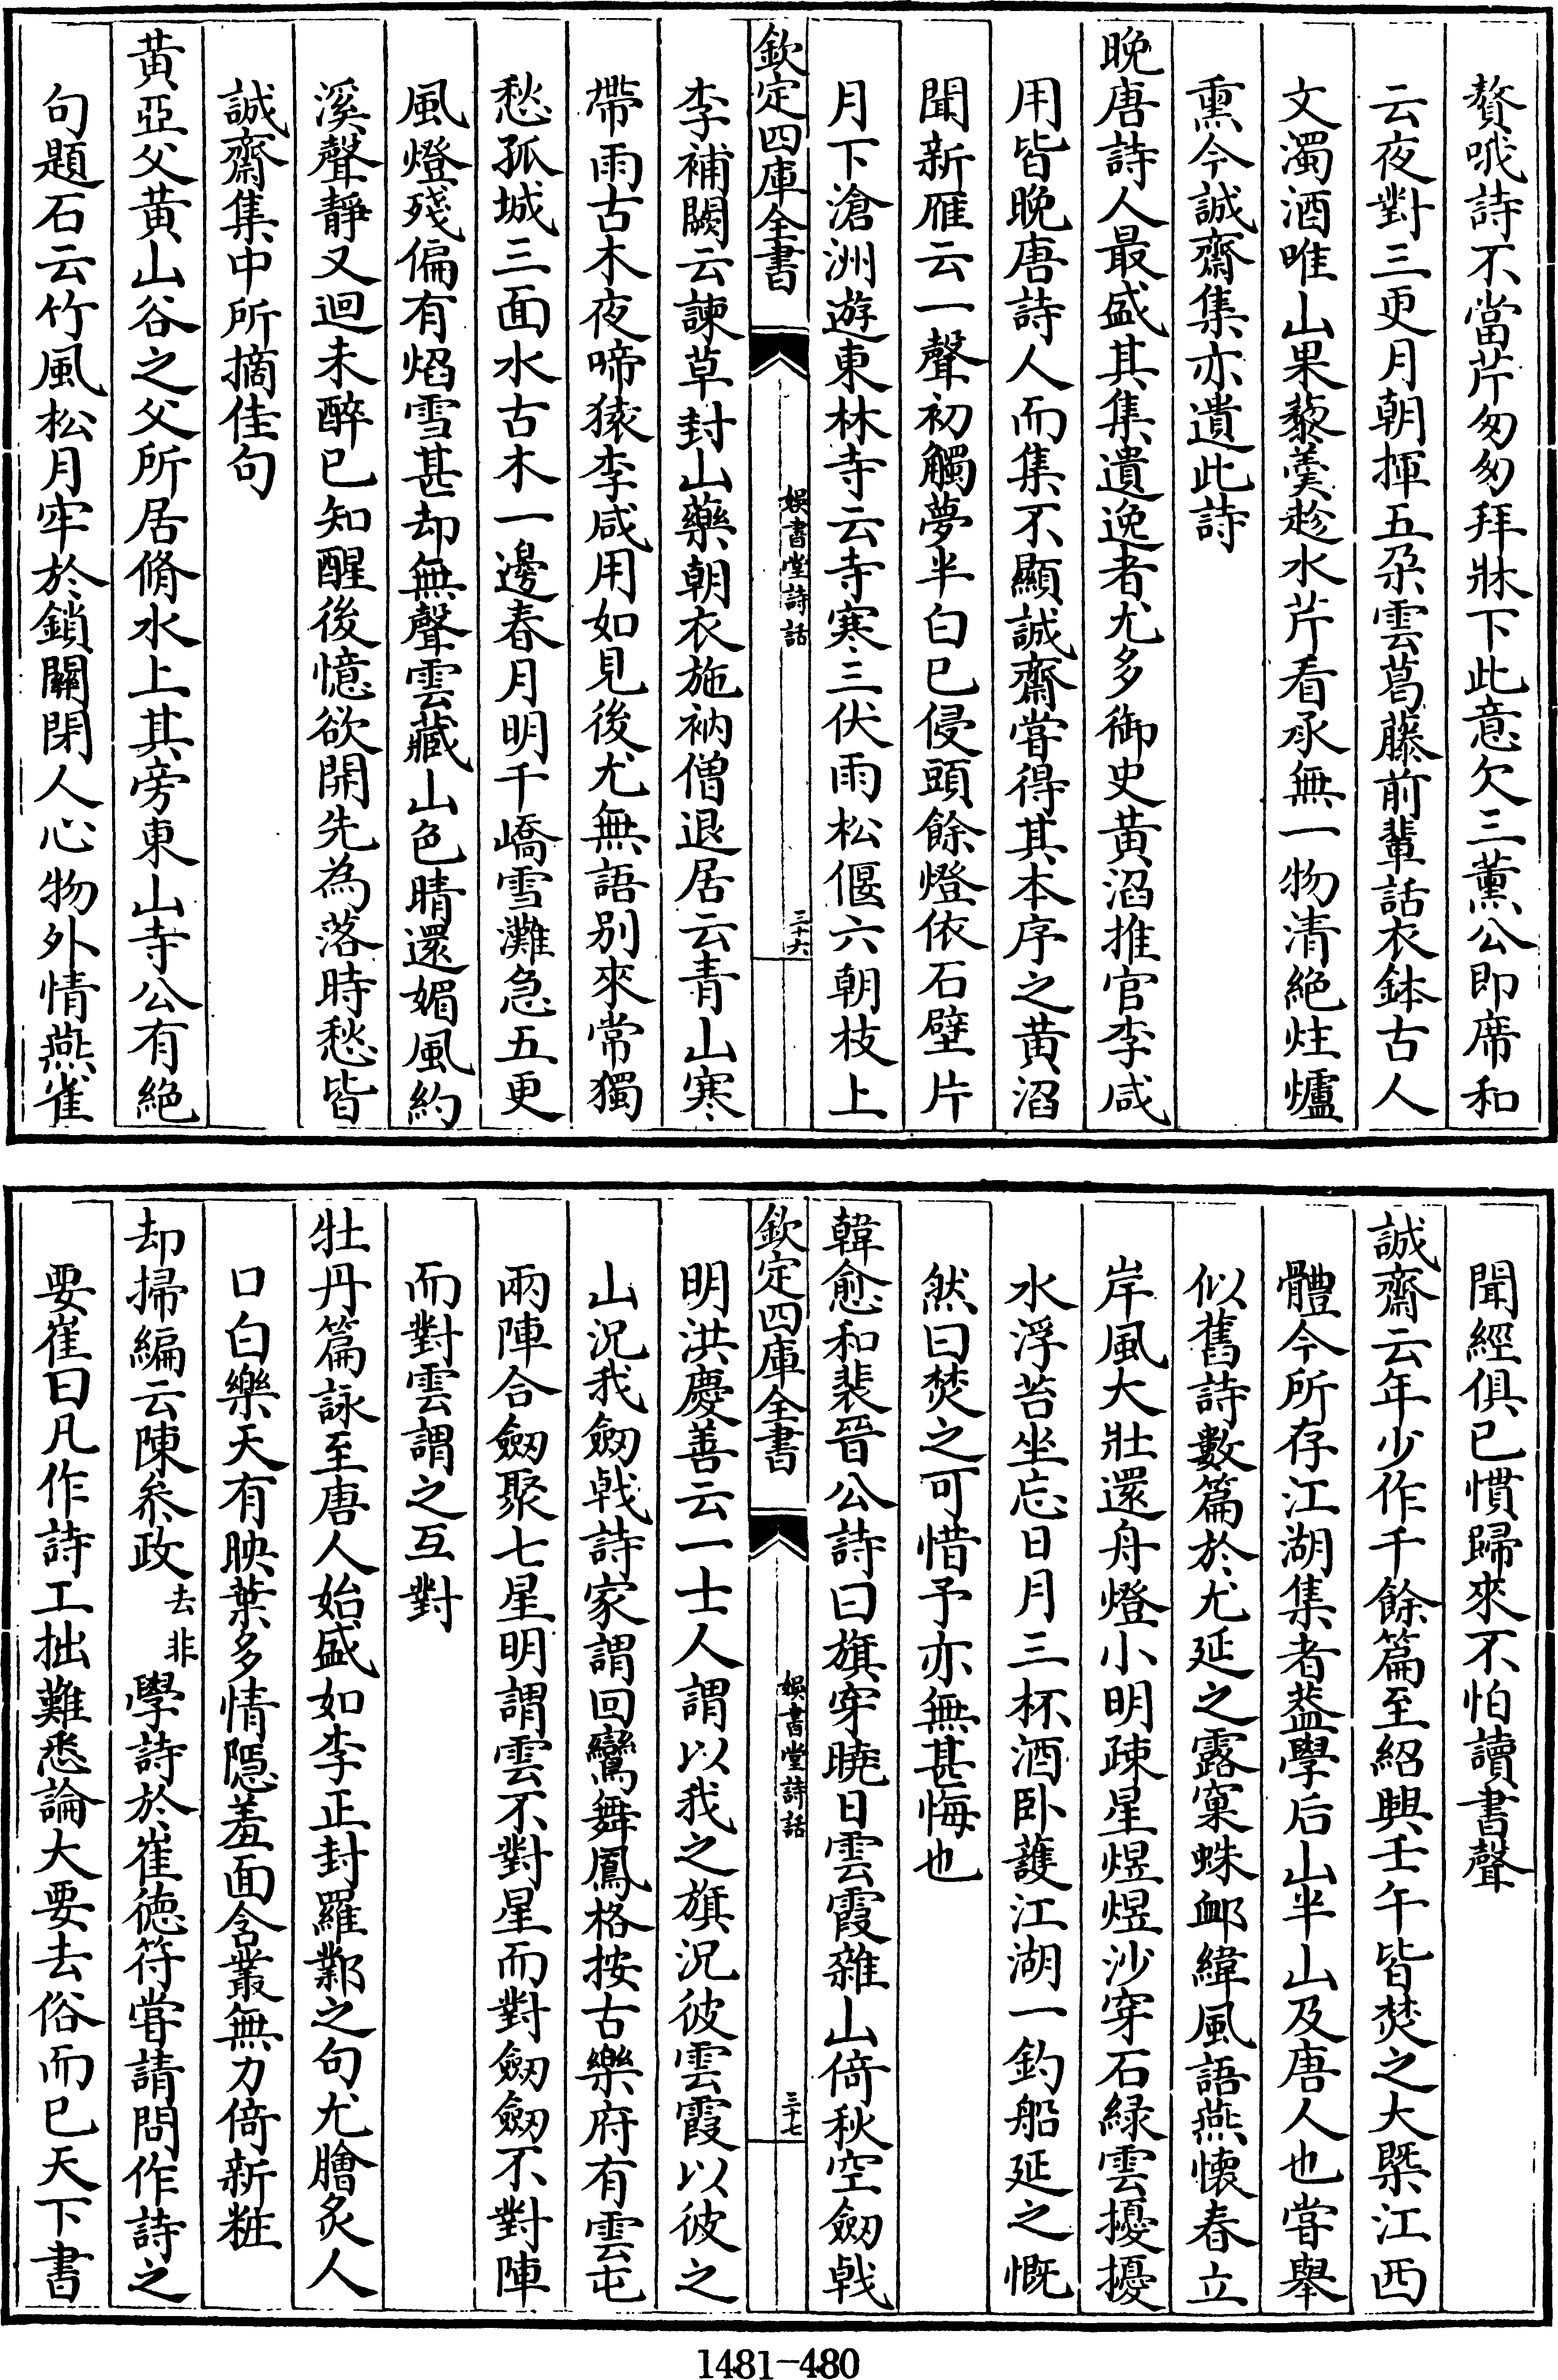 贅哦詩不當芹匆匆拜牀下此意欠三薰公即席和
云夜對三更月朝揮五朶雲葛藤前輩話衣鉢古人
文濁酒唯山果藜羮趁水芹看承無一物清絶炷爐
熏今誠齋集亦遺此詩
晚唐詩人最盛其集遺逸者尤多御史黄滔推官李咸
用皆晚唐詩人而集不顯誠齋甞得其本序之黄滔
聞新雁云一聲初觸夢半白已侵頭餘燈依石壁片
月下滄洲遊東林寺云寺寒三伏雨松偃六朝枝上
欽定四庫全書
娛書堂詩話
三十六
李補闕云諫草封山藥朝衣施衲僧退居云青山寒
帶雨古木夜啼猿李咸用如見後尤無語别來常獨
愁孤城三面水古木一邊春月明千嶠雪灘急五更
風燈殘偏有焰雪甚却無聲雲藏山色晴還媚風約
溪聲靜又迴未醉已知醒後憶欲開先為落時愁皆
誠齋集中所摘佳句
黄亞父黄山谷之父所居脩水上其旁東山寺公有絶
句題石云竹風松月牢於鎖關閉人心物外情燕雀
聞經俱已慣歸來不怕讀書聲
誠齋云年少作千餘篇至紹興壬午皆焚之大槩江西
體今所存江湖集者葢學后山半山及唐人也甞舉
似舊詩數篇於尤延之露窠蛛䘏緯風語燕懷春立
岸風大壯還舟燈小明疎星煜煜沙穿石緑雲擾擾
水浮苔坐忘日月三杯酒卧護江湖一釣船延之慨
然曰焚之可惜予亦無甚悔也
韓愈和裴晉公詩曰旗穿曉日雲霞雜山倚秋空劒㦸
欽定四庫全書
娛書堂詩話
三十七
明洪慶善云一士人謂以我之旗況彼雲霞以彼之
山況我劒㦸詩家謂回鸞舞鳳格按古樂府有雲屯
兩陣合劒聚七星明謂雲不對星而對劒劒不對陣
而對雲謂之互對
牡丹篇詠至唐人始盛如李正封羅鄴之句尤膾炙人
口白樂天有映葉多情隱羞面含叢無力倚新粧
却掃編云陳叅政去非學詩於崔德符甞請問作詩之
要崔曰凡作詩工拙難悉論大要去俗而已天下書
1481-480